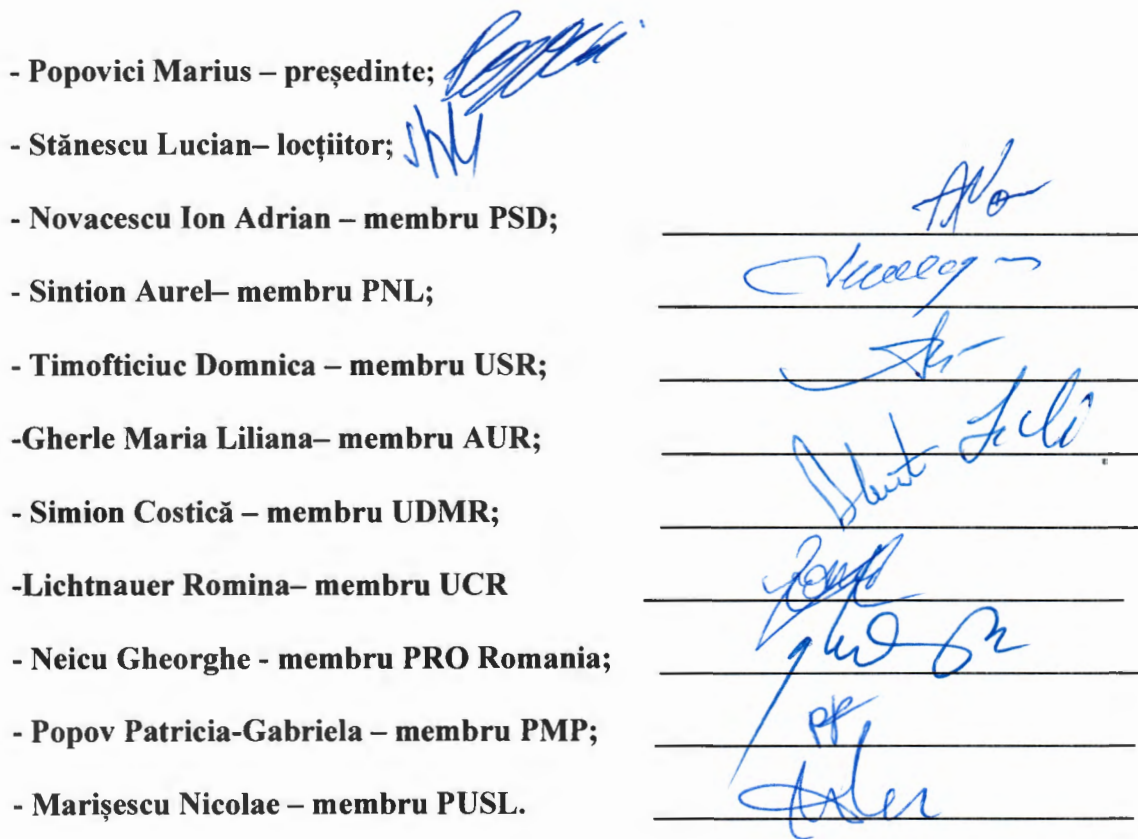 - Popovici Marius – președinte;
- Stănescu Lucian– locțiitor;
- Novacescu Ion Adrian – membru PSD;
- Sintion Aurel– membru PNL;
- Timofticiuc Domnica – membru USR;
-Gherle Maria Liliana– membru AUR;
- Simion Costică – membru UDMR;
-Lichtnauer Romina– membru UCR
- Neicu Gheorghe - membru PRO Romania;
- Popov Patricia-Gabriela – membru PMP;
- Marișescu Nicolae – membru PUSL.